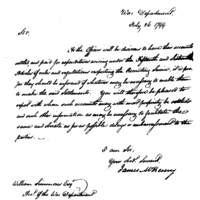 War Department,
July 26. 1799
Sir.
As the Officers will be desirous to have their accounts
settled and paid for expenditures arising under the Fifteenth and Sixteenth
Articles of rules and regulations respecting the Recruiting service, it is pro-
per they should be informed if whatever may be necessary to enable them
to make the said Settlements. You will therefore be pleased to
report with whom such accounts may with most propriety be settled
and such other information as may be necessary to facilitate the
same and obviate as far as possible delays or embarrassments to the
parties.
I am Sir,
Your obt. Servant
James McHenry
William Simmons Esq.
Acct. of the War Department